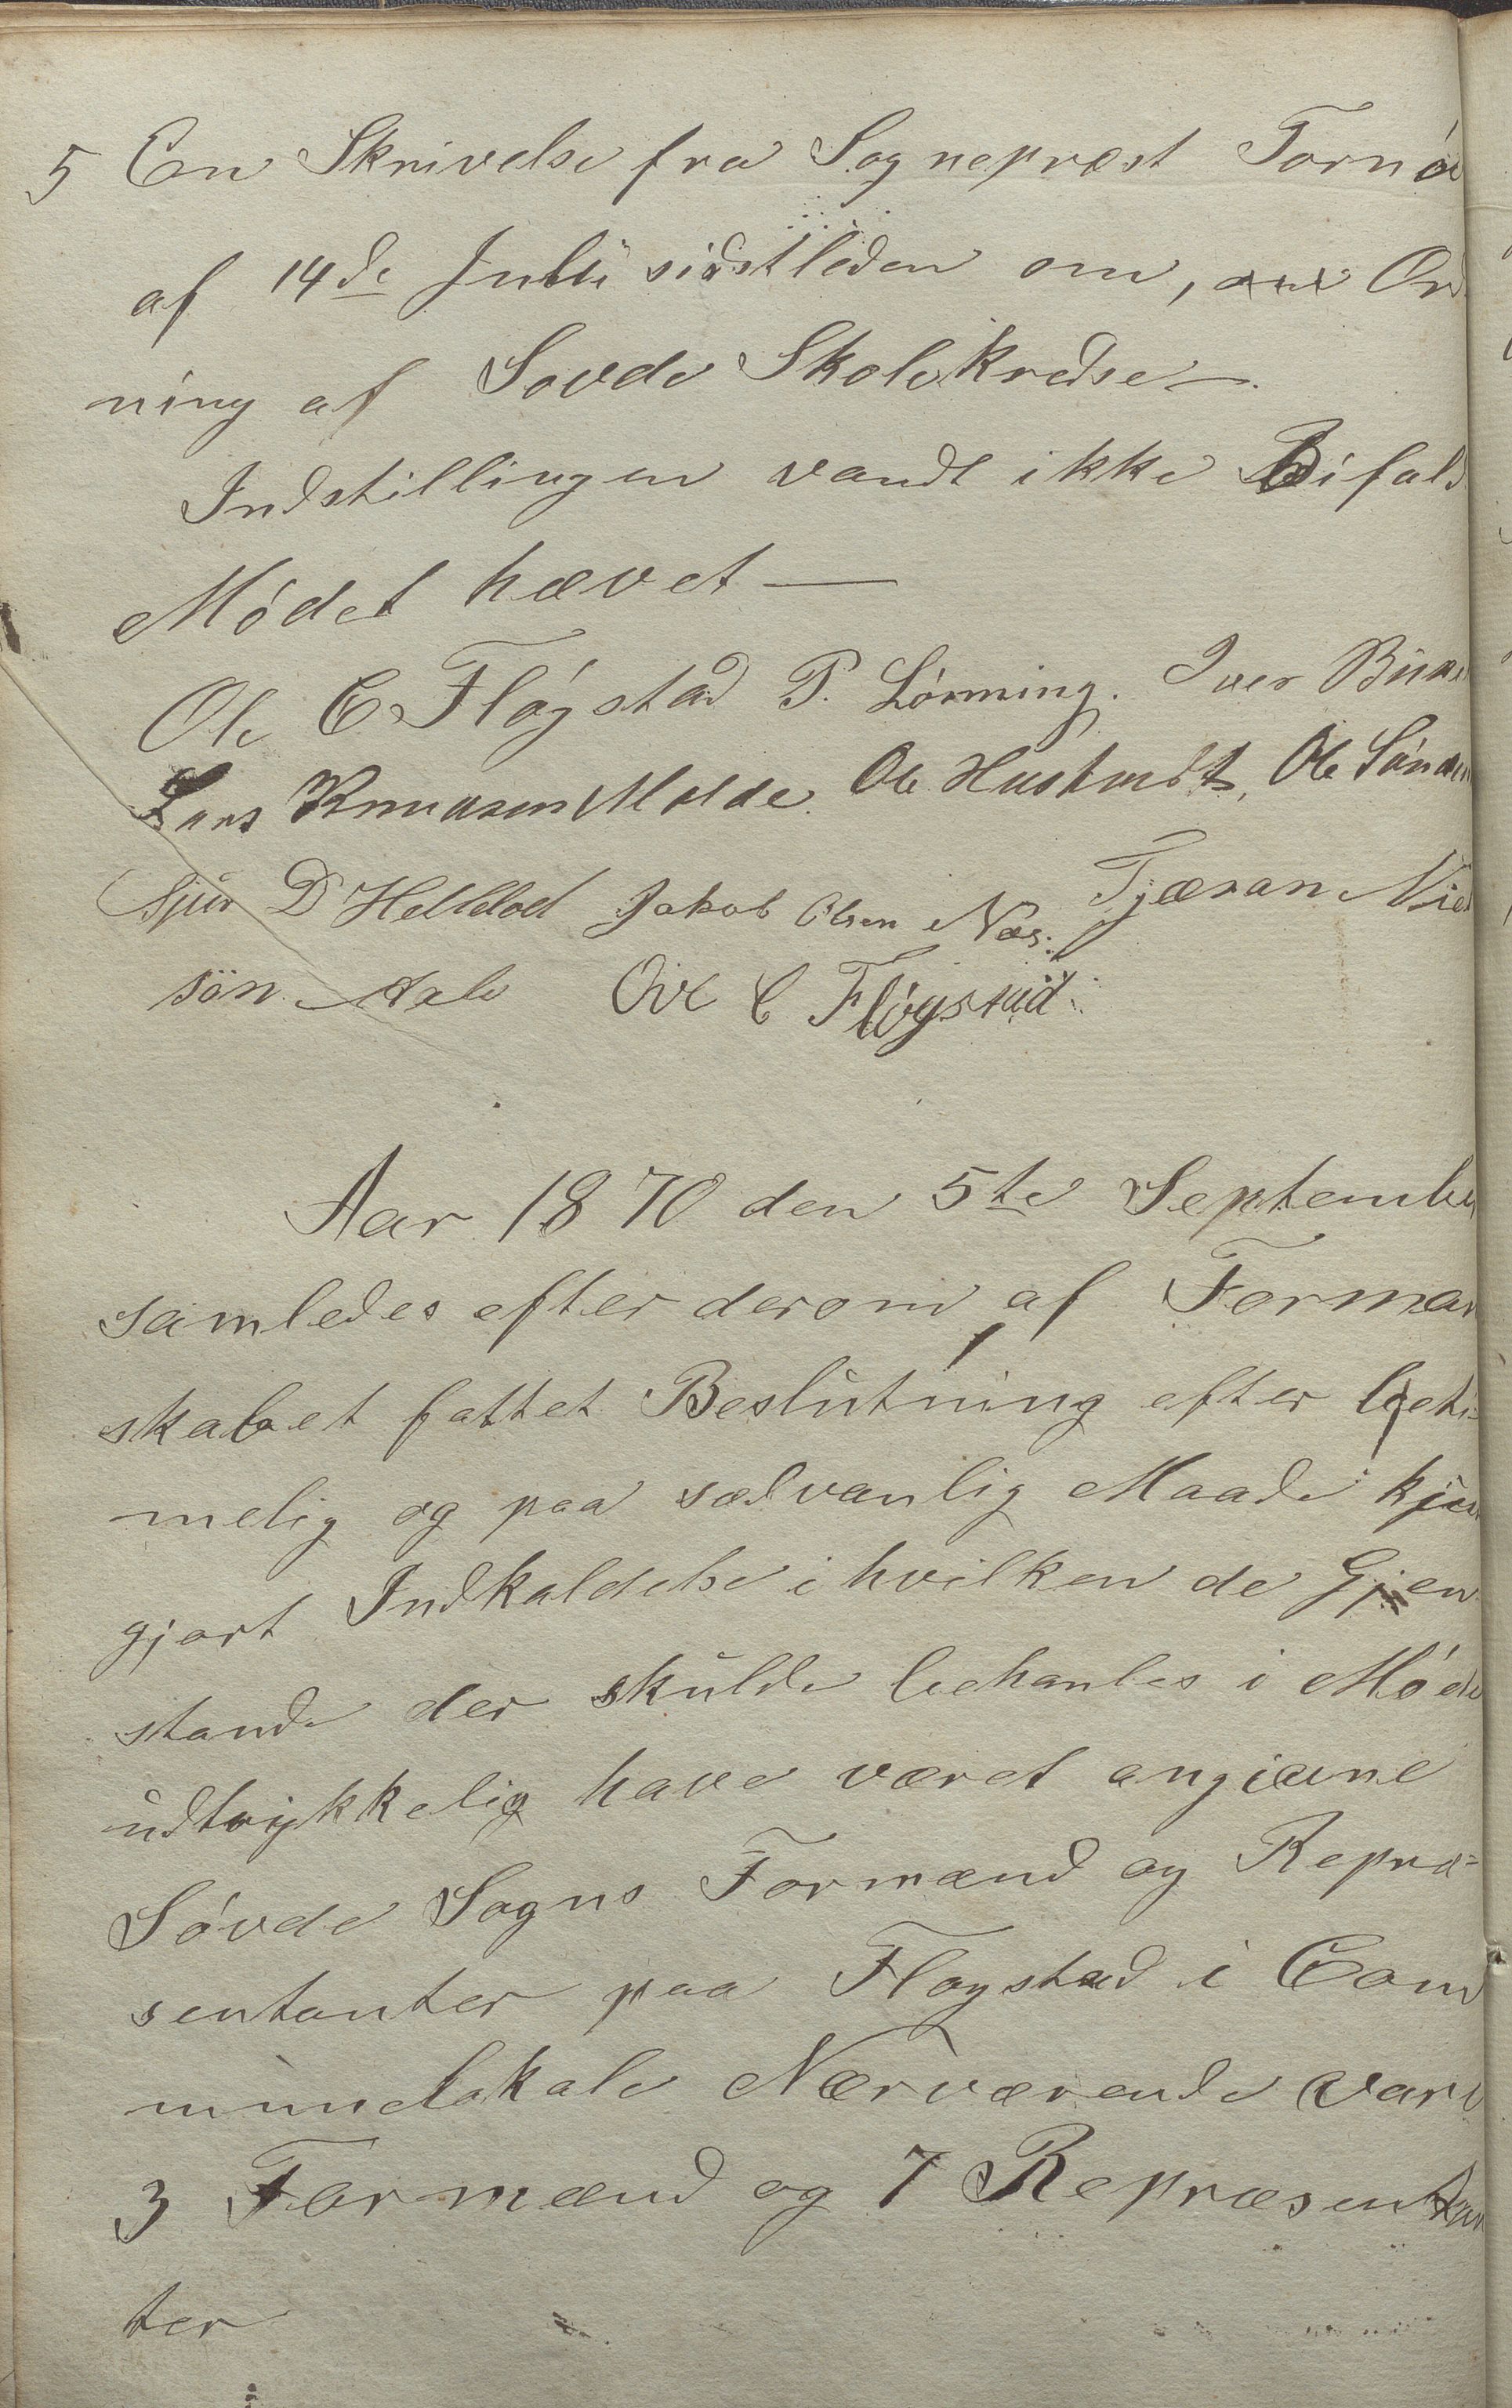 5 En Skrivelse fra Sognepræst Tornøe
af 14de Juli sidstleden om, Ord
ning af Sovde Skolekredse —.
Indstillingen vandt ikke Bifald
Mödet hævet —
Ole C Flögstad P. Lönning. Iver Birke
Lars Knudsen Molde. Ole Hustvedt, Ole Sönden
Sjur D Helleloed Jakob Olsen Næs. Tjæran Niel
sön Aale Ove C Flögstad
Aar 1870 den 5te September
samledes efter derom af Forman
skabet fattet Beslutning efter beti=
melig og paa sædvanlig Maade kjend
gjort Indkaldelse i hvilken de Gjen
stande der skulde behanles i Möde
udtrykkelig have været angivne
Sövde Sogns Formænd og Repræ=
sentanter paa Flogstad i Com
munelokale Nærværende vare
3 Formænd og 7 Repræsentan
ter